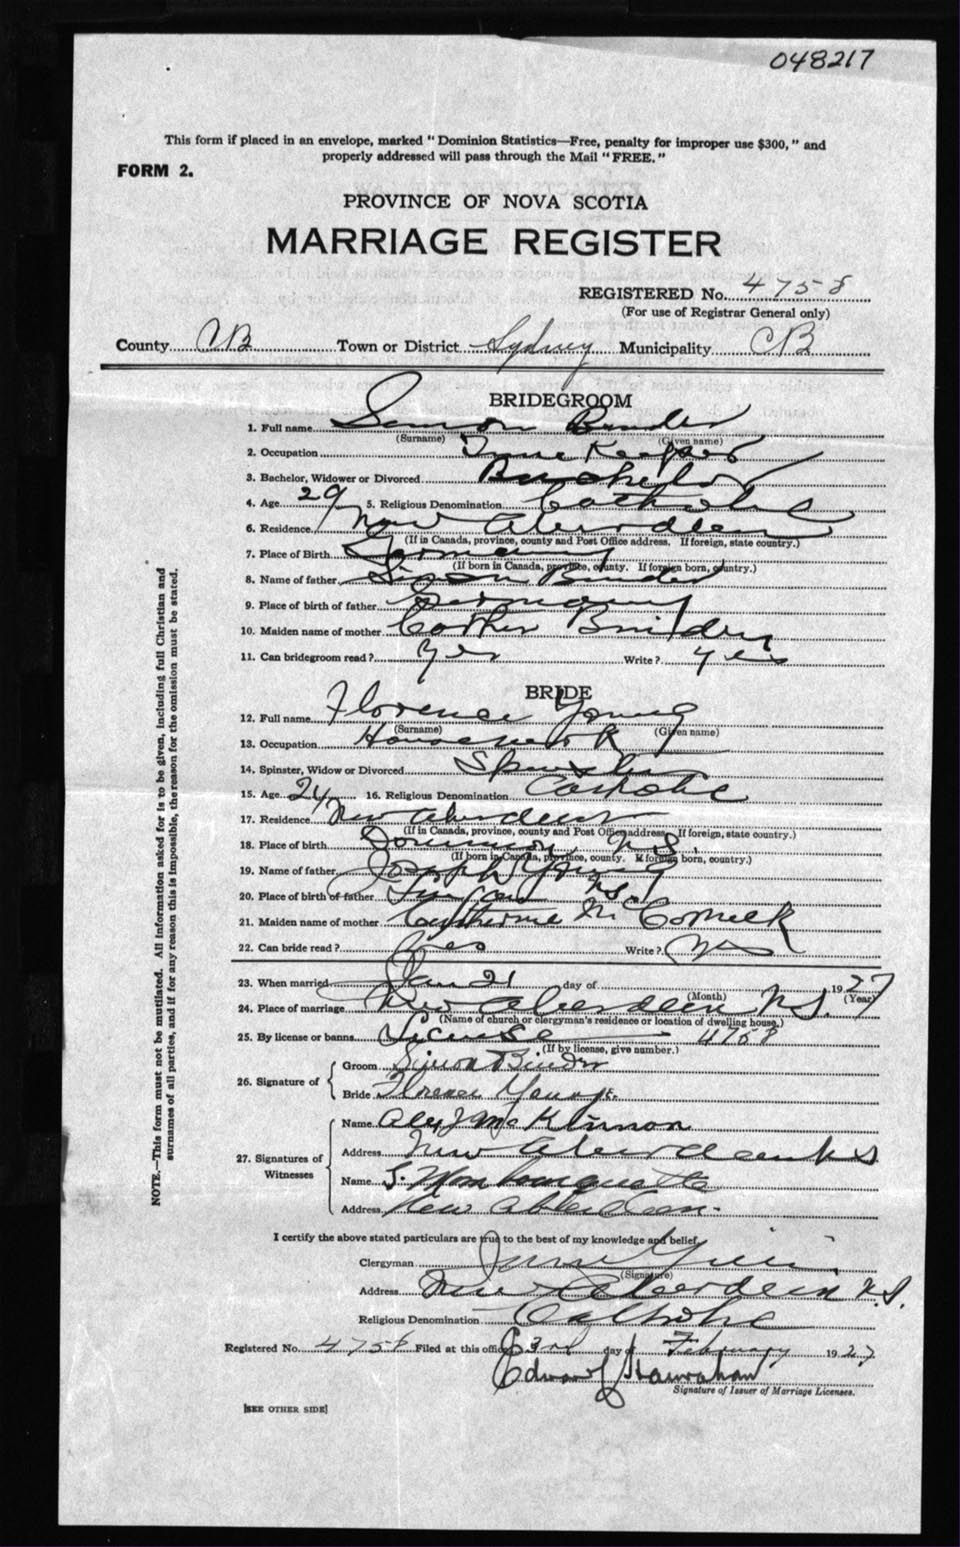 048217
This form if placed in an envelope, marked "Dominion Statistics—Free, penalty for improper use $300," and
properly addressed will pass through the Mail "FREE."
FORM 2.
PROVINCE OF NOVA SCOTIA
MARRIAGE REGISTER
REGISTERED No. 4758
(For use of Registrar General only)
County CB Town or District Sydney Municipality CB
BRIDEGROOM
1. Full name Simon Binder
(Surname) (Given name)
2. Occupation Time Keeper
3. Bachelor, Widower or Divorced Bachelor
4. Age 29 5. Religious Denomination Catholic
6. Residence New Aberdeen
(If in Canada, province, county and Post Office address. If foreign, state country.)
7. Place of Birth Germany
(If born in Canada, province, county. If foreign born, country.)
8. Name of father Simon Binder
9. Place of birth of father Germany
10. Maiden name of mother
11. Can bridegroom read? Yes Write? Yes
BRIDE
12. Full name Florence Young
(Surname) (Given name)
13. Occupation Housework
14. Spinster, Widow or Divorced Spinster
15. Age 24 16. Religious Denomination Catholic
17. Residence New Aberdeen
(If in Canada, province, county and Post Office address. If foreign, state country.)
18. Place of birth Dominion N.S.
(If born in Canada, province, county. If foreign born, country.)
19. Name of father Joseph Young
20. Place of birth of father N.S.
21. Maiden name of mother Catherine McCormick
22. Can bride read? Yes Write? Yes
23. When married Jan 21 day of 1927
(Month) (Year)
24. Place of marriage New Aberdeen N.S.
(Name of church or clergyman's residence or location of dwelling house.)
25. By license or banns License 4758
(If by license, give number.)
26. Signature of
Groom Simon Binder
Bride Florence Young
27. Signatures of Witnesses
Name Alex J McKinnon
Address New Aberdeen N S
Name
Address New Abberdeen
I certify the above stated particulars are true to the best of my knowledge and belief.
Clergyman
(Signature)
Address New Aberdeen N.S.
Religious Denomination Catholic
Registered No. 4758 Filed at this office 3rd day of February 1927
Edward
Signature of Issuer of Marriage Licenses.
[SEE OTHER SIDE]
NOTE.—This form must not be mutilated. All Information asked for is to be given, including full Christian and
surnames of all parties, and if for any reason this is impossible, the reason for the omission must be stated.